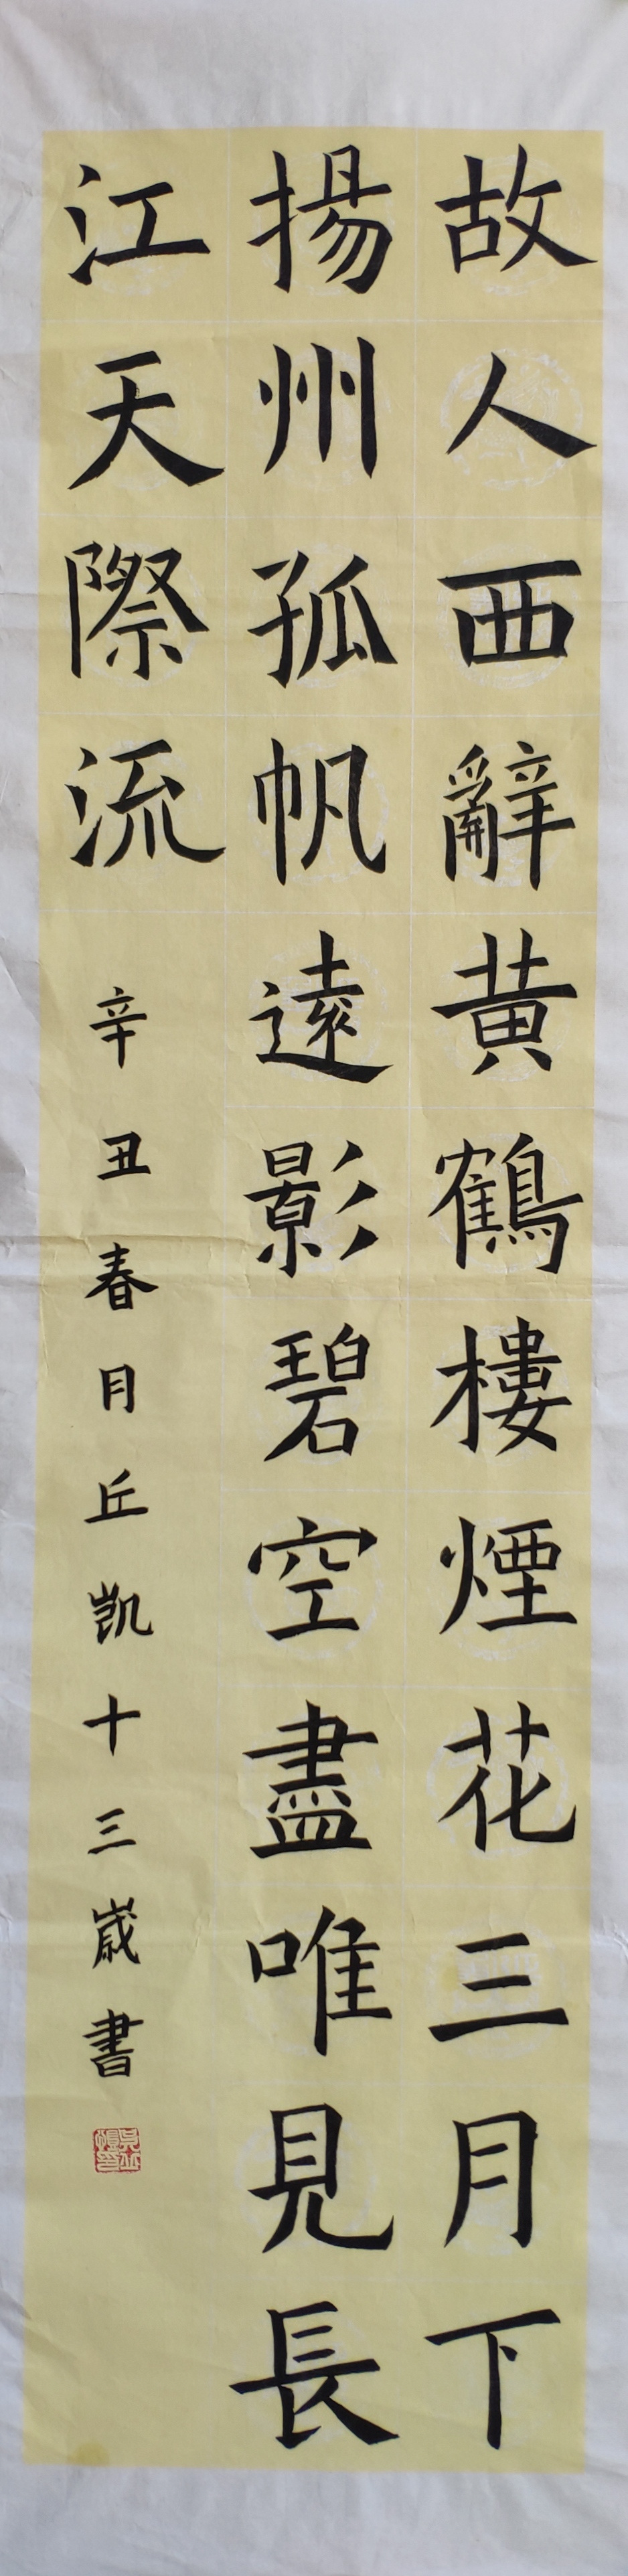 故人西辭黃鶴樓煙花三月下
揚州孤帆遠影碧空盡唯見長
江天際流
辛丑春月丘凯十三歲書